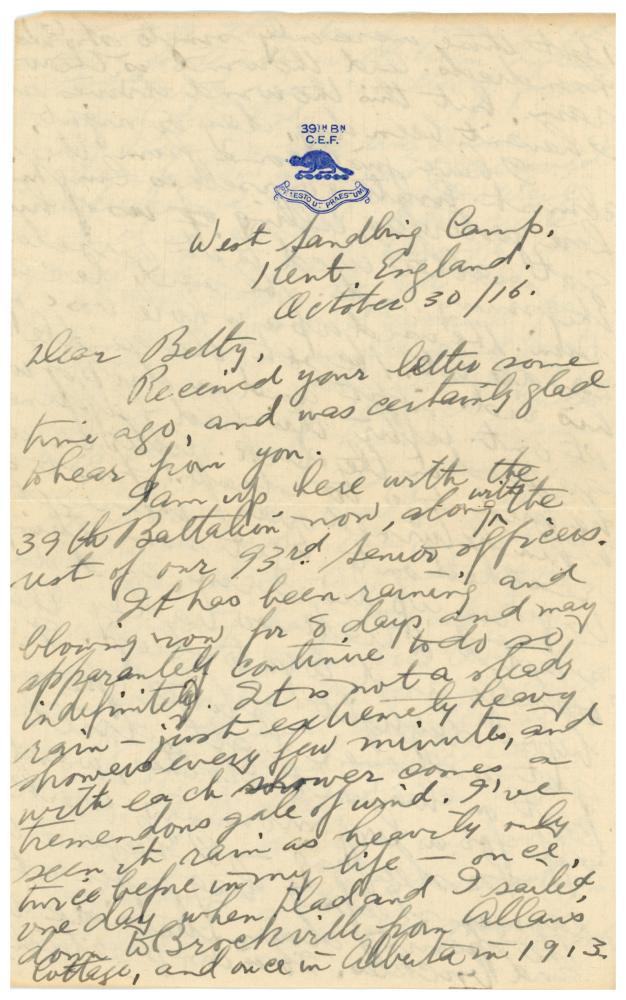 39TH BN
C.E.F.
West Sandling Camp,
Kent, England.
October 30/16.
Dear Betty,
Received your letter some
time ago, and was certainly glad
to hear from you.
I am up here with the
39th Battalion now, along with the
rest of our 93rd Senior officers.
It has been raining and
blowing now for 8 days and may
apparantely continue to do so
indefinitely. It is not a steady
rain – just extremely heavy
showers every few minutes, and
with each shower comes a
tremendous gale of wind. I've
seen it rain as heavily only
twice before in my life – once,
one day when Had and I sailed
down to Brockville from Allan's
Cottage, and once in Alberta in 1913.